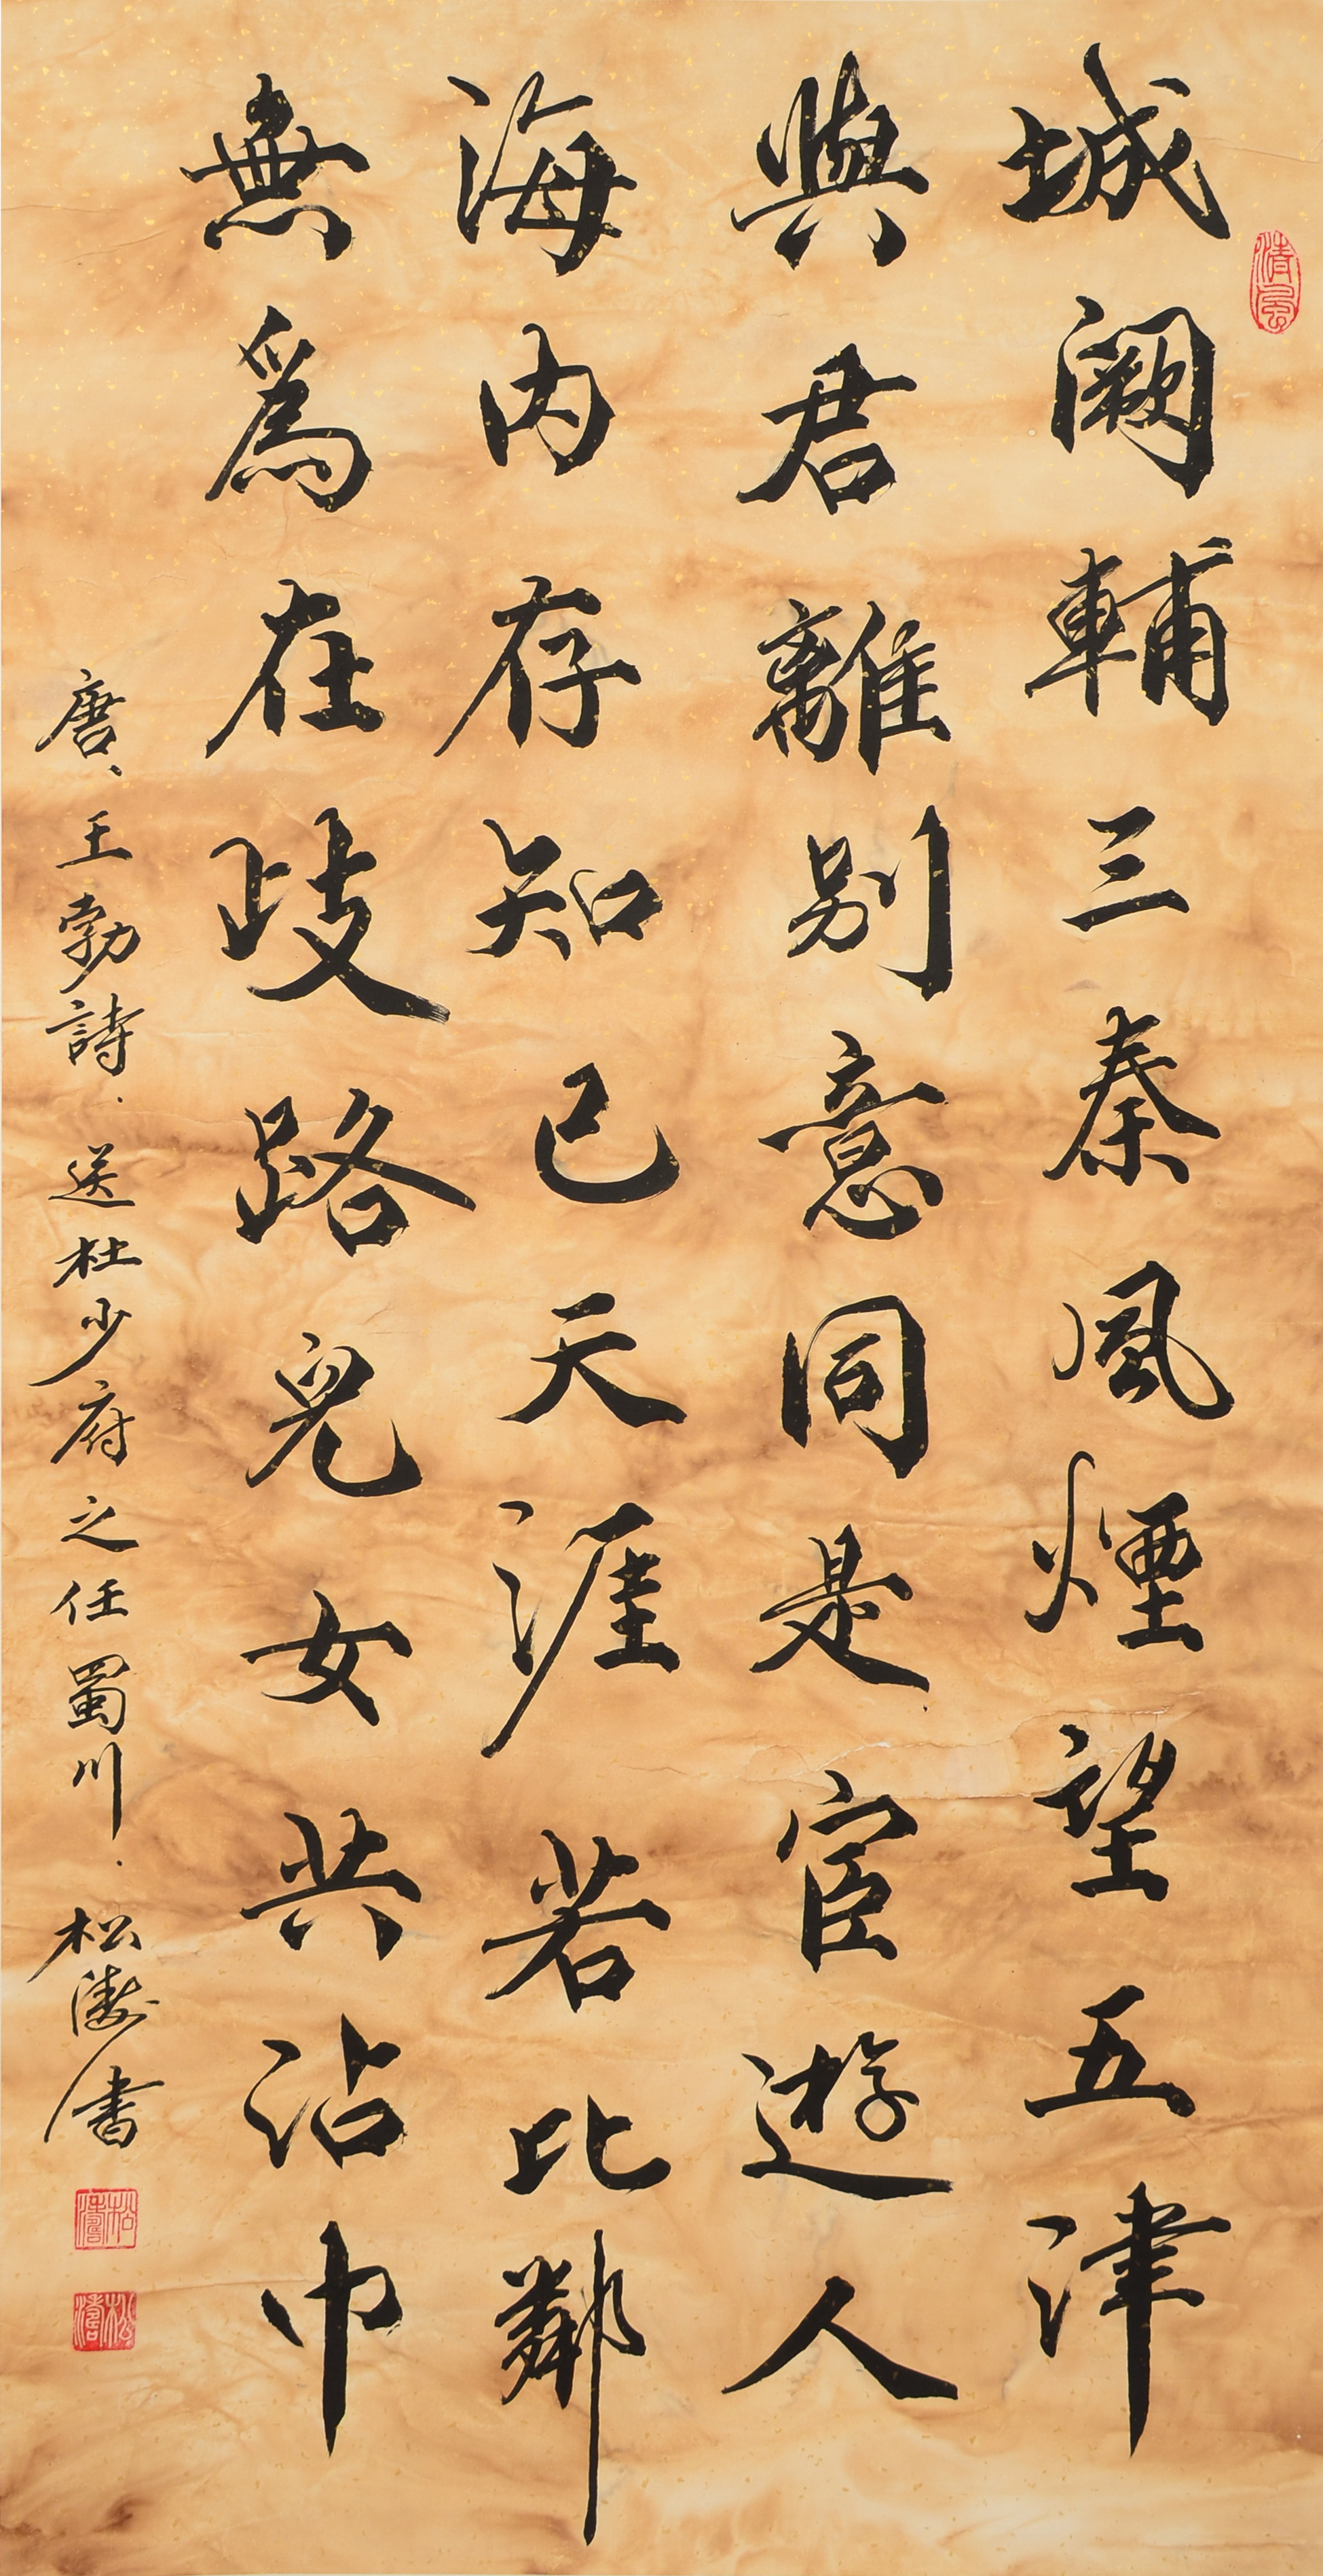 城闕輔三秦風煙望五津
與君離別意同是宦遊人
海内存知己天涯若比鄰
無爲在歧路兒女共沾巾
唐、王勃詩．送杜少府之任蜀川．松濤書
清風